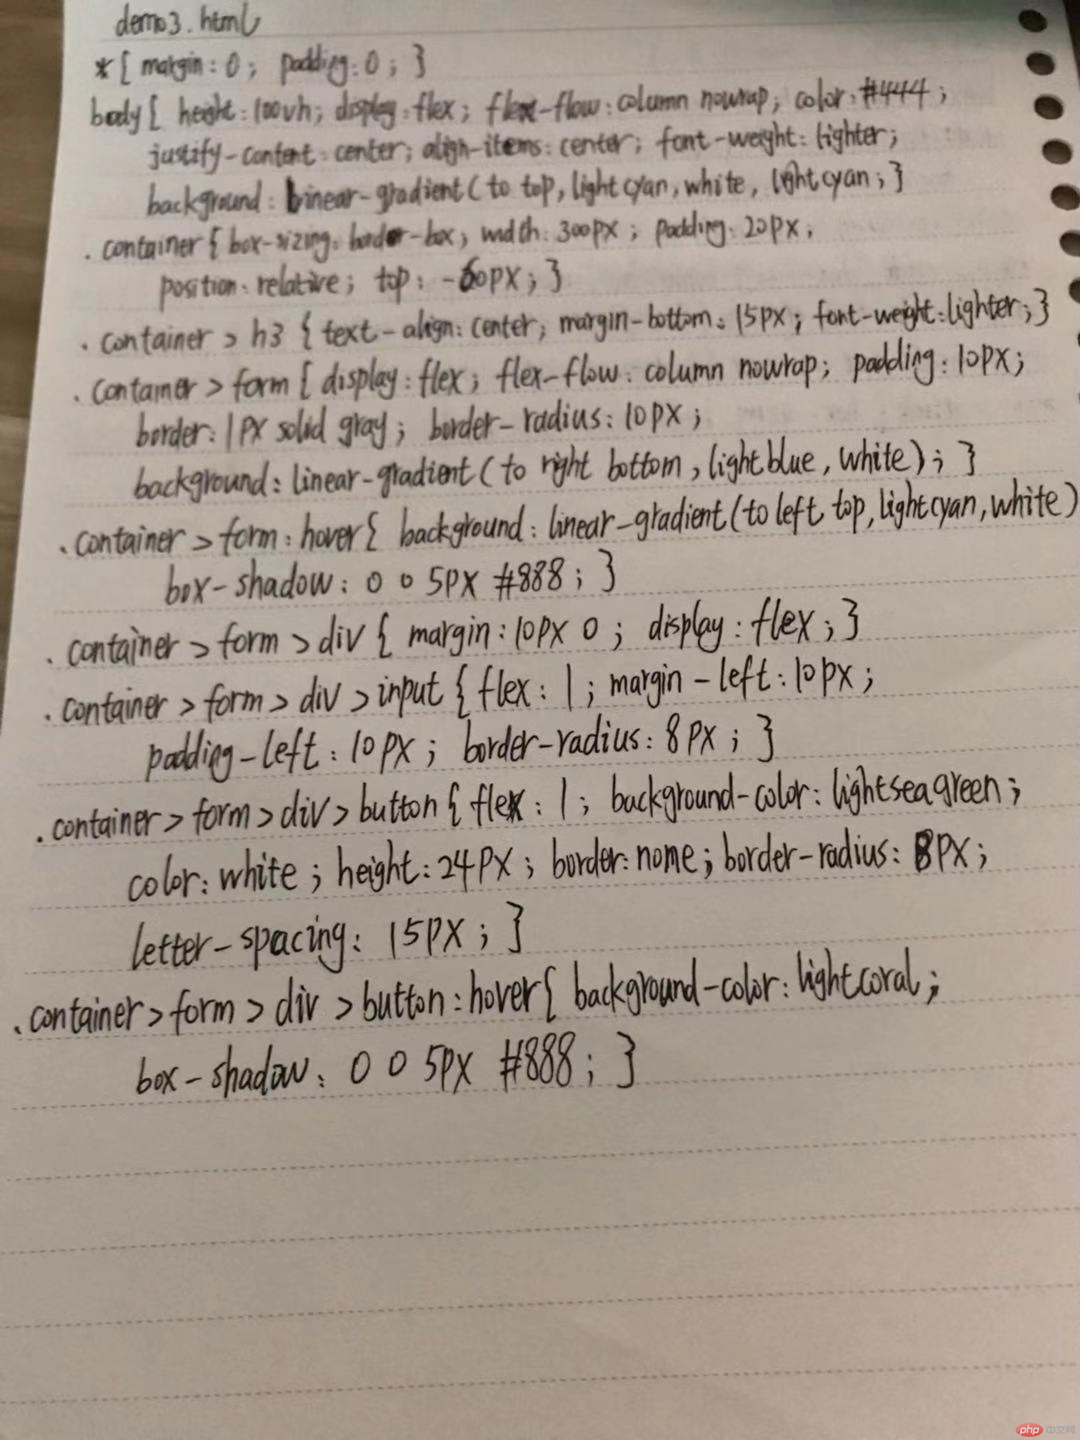 demo3.html
*{ margin:0; padding:0; }
body{ height:100vh; display:flex; flex-flow:column nowrap; color:#444;
justify-content:center; align-items:center; font-weight:lighter;
background: linear-gradient(to top,lightcyan,white, lightcyan; }
.container{ box-sizing:border-box; width:300PX; padding:20PX;
position:relative; top: -60PX; }
.container > h3 { text-align:center; margin-bottom:15PX; font-weight:lighter; }
.container > form { display:flex; flex-flow:column nowrap; padding:10PX;
border:1PX solid gray; border-radius:10PX;
background: linear-gradient(to right bottom, lightblue, white); }
.container > form:hover{ background: linear-gradient(to left top, lightcyan, white)
box-shadow: 0 0 5PX #888; }
.container > form > div { margin:10PX 0; display:flex; }
.container > form > div > input { flex:1; margin-left:10PX;
padding-left:10PX; border-radius:8PX; }
.container > form > div > button { flex:1; background-color:lightseagreen;
color:white; height:24PX; border:nome; border-radius:8PX;
letter-spacing:15PX; }
.container > form > div > button:hover{ background-color:lightcoral;
box-shadow: 0 0 5PX #888; }
php 中文网